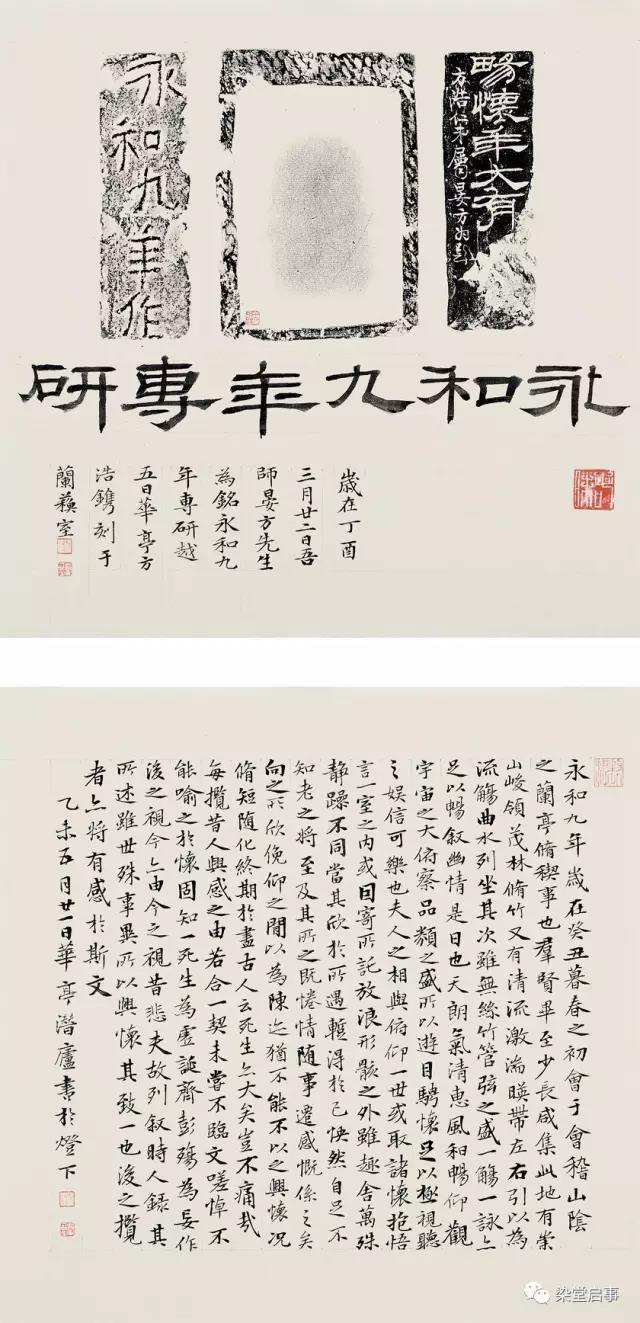 暢懷年大有
永和九年作
永和九年專研
歲在丁酉
三月廿二日吾
師晏方先生
為銘永和九
年專研越
五日華亭方
浩鐫刻于
蘭蘋室
永和九年歲在癸丑暮春之初會于會稽山陰
之蘭亭脩稧事也羣賢畢至少長咸集此地有崇
山峻領茂林脩竹又有清流激湍暎帶左右引以為
流觴曲水列坐其次雖無絲竹管弦之盛一觴一詠亦
足以暢敘幽情是日也天朗氣清惠風和暢仰觀
宇宙之大俯察品類之盛所以遊目騁懷足以極視聽
之娛信可樂也夫人之相與俯仰一世或取諸懷抱悟
言一室之內或因寄所託放浪形骸之外雖趣舍萬殊
靜躁不同當其欣於所遇暫得於己怏然自足不
知老之將至及其所之既惓情隨事遷感慨係之矣
向之所欣俛仰之閒以為陳迹猶不能不以之興懷況
脩短隨化終期於盡古人云死生亦大矣豈不痛哉
每攬昔人興感之由若合一契未嘗不臨文嗟悼不
能喻之於懷固知一死生為虛誕齊彭殤為妄作
後之視今亦由今之視昔悲夫故列敘時人錄其
所述雖世殊事異所以興懷其致一也後之攬
者亦將有感於斯文
乙未五月廿一日華亭潛廬書於燈下
染堂启事